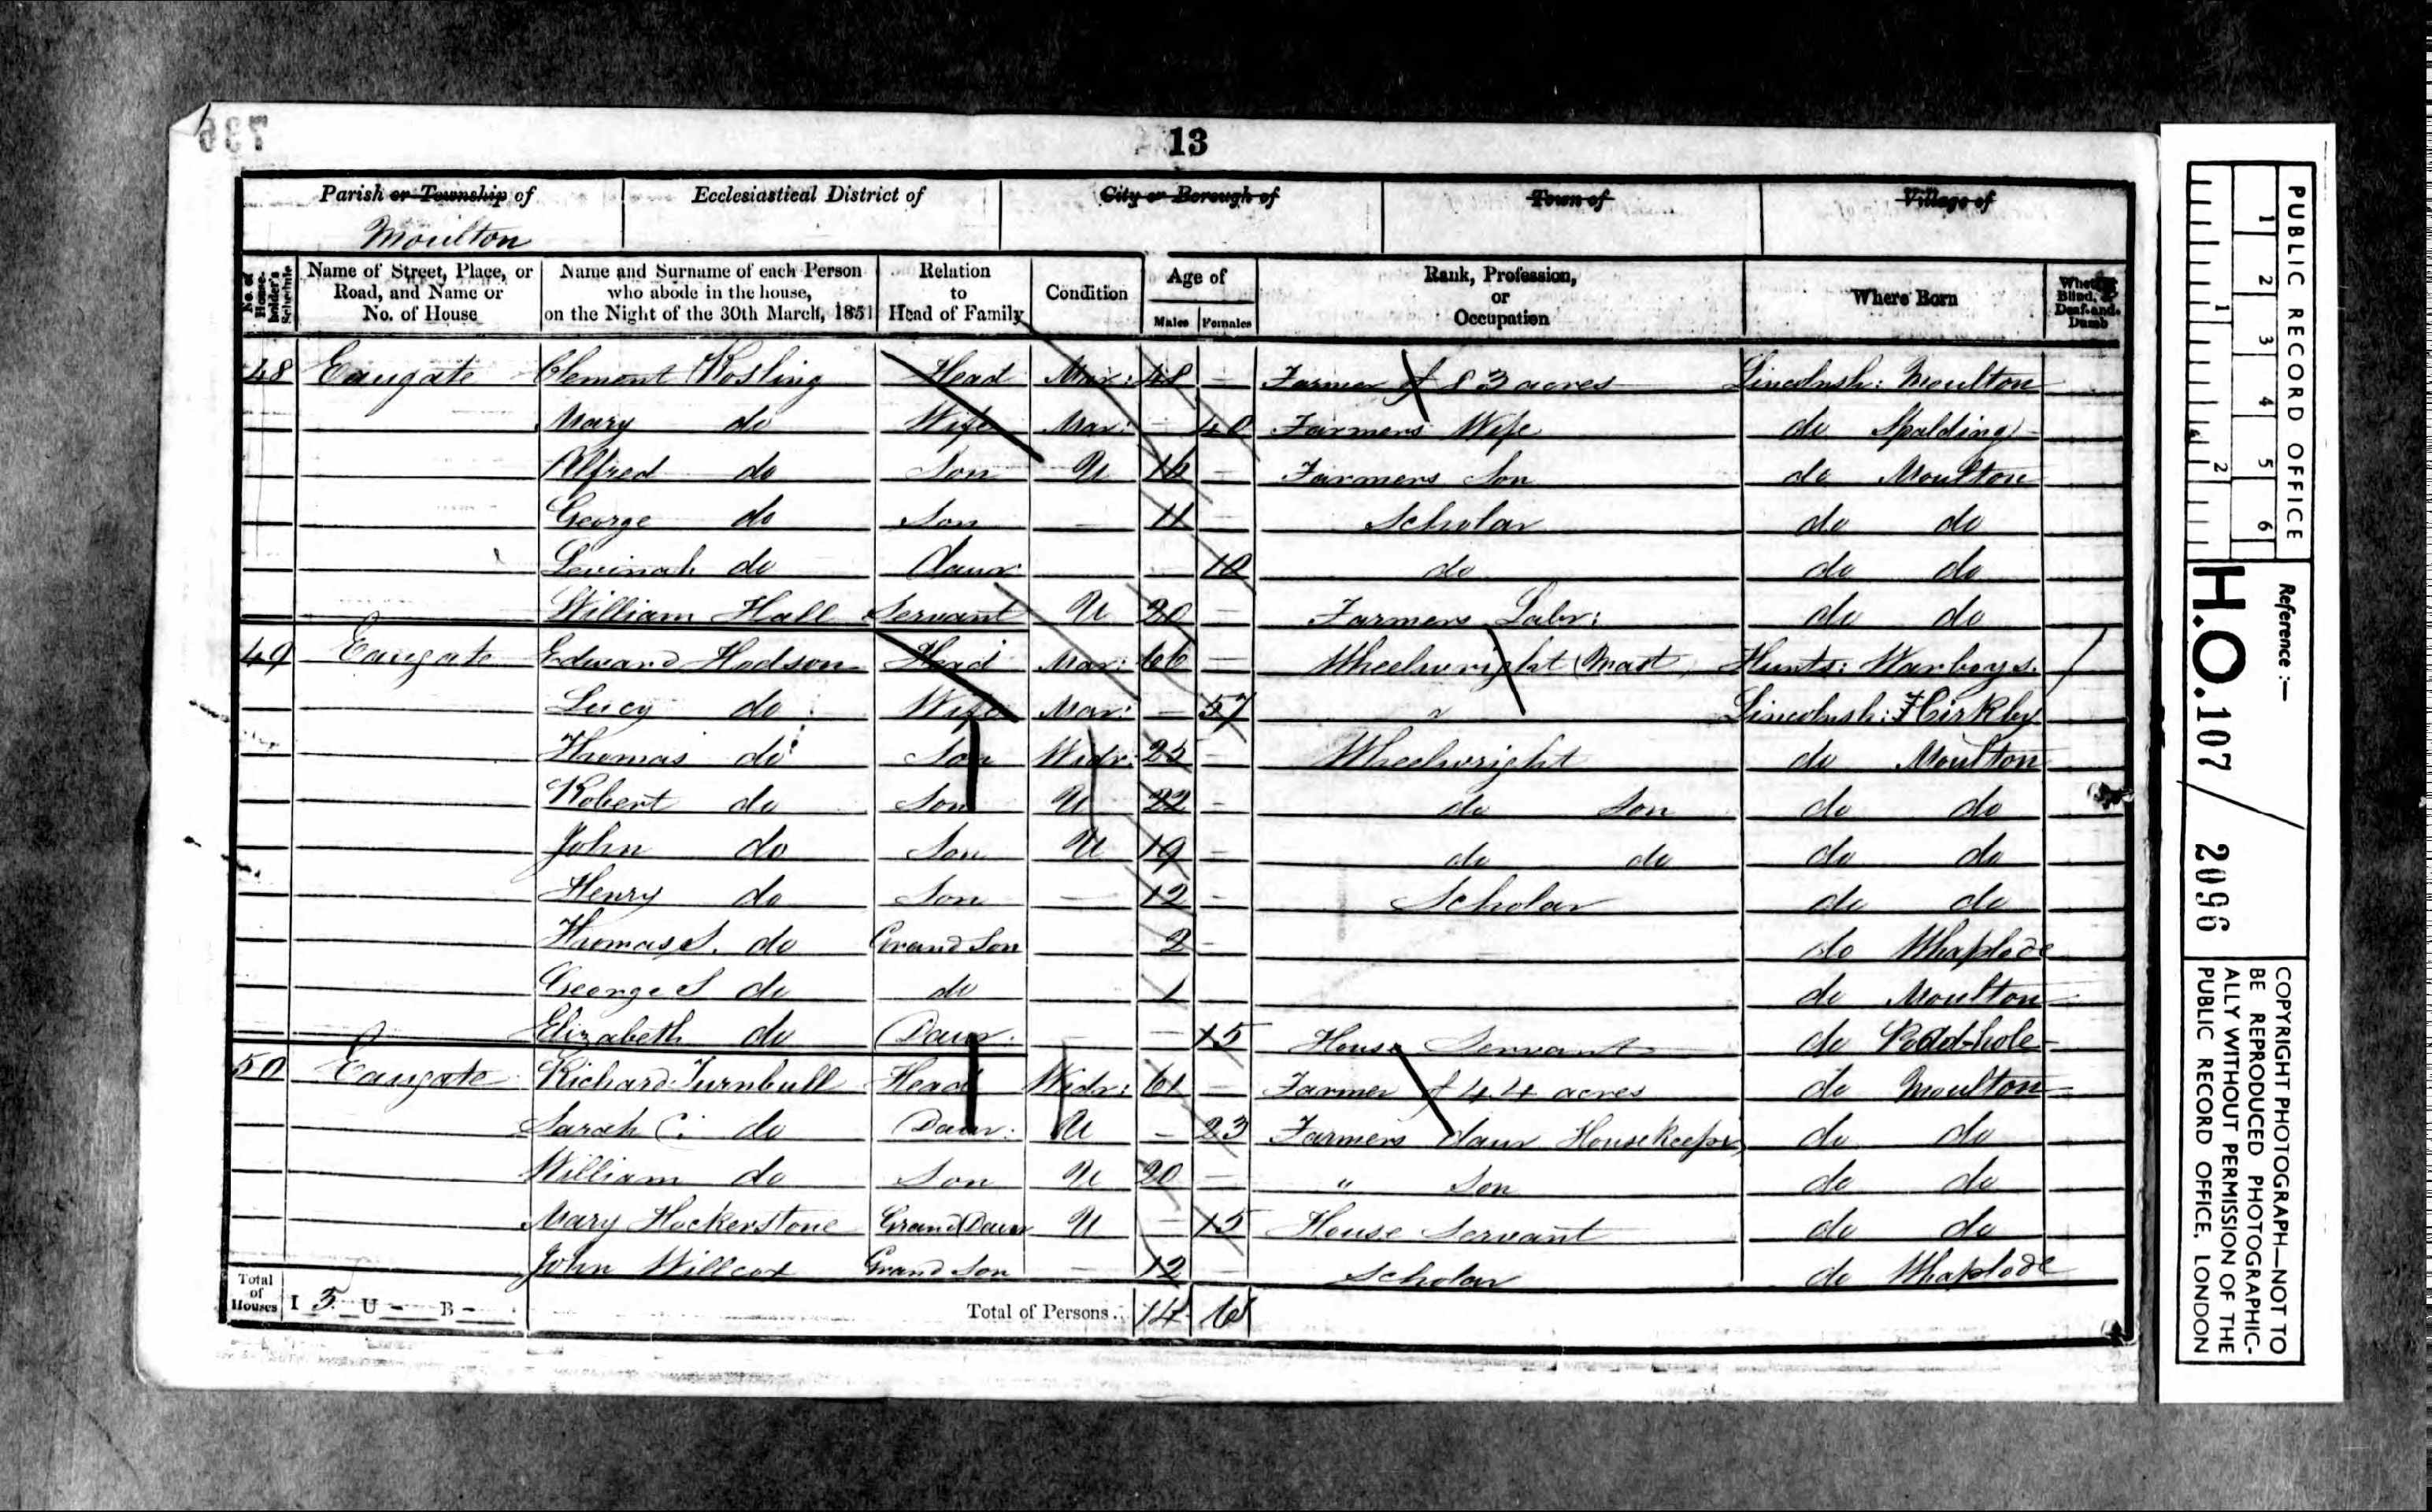 736
13
Parish or Township of Ecclesiastical District of City or Borough of Town of Village of
Moulton
No. of House-holder's Schedule Name of Street, Place, or Road, and Name or No. of House Name and Surname of each Person who abode in the house, on the Night of the 30th March, 1851 Relation to Head of Family Condition Age of Males Females Rank, Profession, or Occupation Where Born Whether Blind, or Deaf-and-Dumb
48 Eaugate Clement Rosling Head Mar: 48 – Farmer of 83 acres Lincolnsh: Moulton
Mary do Wife Mar: – 40 Farmers Wife do Spalding
Alfred do Son U 16 – Farmers Son do Moulton
George do Son – 11 – Scholar do do
Levinah do Daur 10 do do do
William Hall Servant U 20 – Farmers Labr: do do
49 Eaugate Edward Hodson Head Mar: 66 – Wheelwright (Mast Hunts: Warboys.
Lucy do Wife Mar: – 57 " Lincolnsh: Kirkby
Thomas do Son Widr: 25 – Wheelwright do Moulton
Robert do Son U 22 – do Son do do
John do Son U 19 – do do do do
Henry do Son – 12 – Scholar do do
Thomas S. do Grand Son 2 – do Whaplode
George S do do 1 do Moulton
Elizabeth do Daur. – – 15 House Servant do Podd-hole
50 Eaugate Richard Turnbull Head Widr: 61 – Farmer of 44 acres do Moulton
Sarah C: do Daur: U – 23 Farmers daur Housekeeper do do
William do Son U 20 – " Son do do
Mary Hockerstone Grand Daur U – 15 House Servant do do
John Willcox Grand Son – 12 – Scholar do Whaplode
Total of Houses I 3 U – B – Total of Persons.. 14 6
PUBLIC RECORD OFFICE
1 2 3 4 5 6
1 2
Reference :—
H.O. 107 / 2096
COPYRIGHT PHOTOGRAPH—NOT TO BE REPRODUCED PHOTOGRAPHIC-
ALLY WITHOUT PERMISSION OF THE
PUBLIC RECORD OFFICE, LONDON